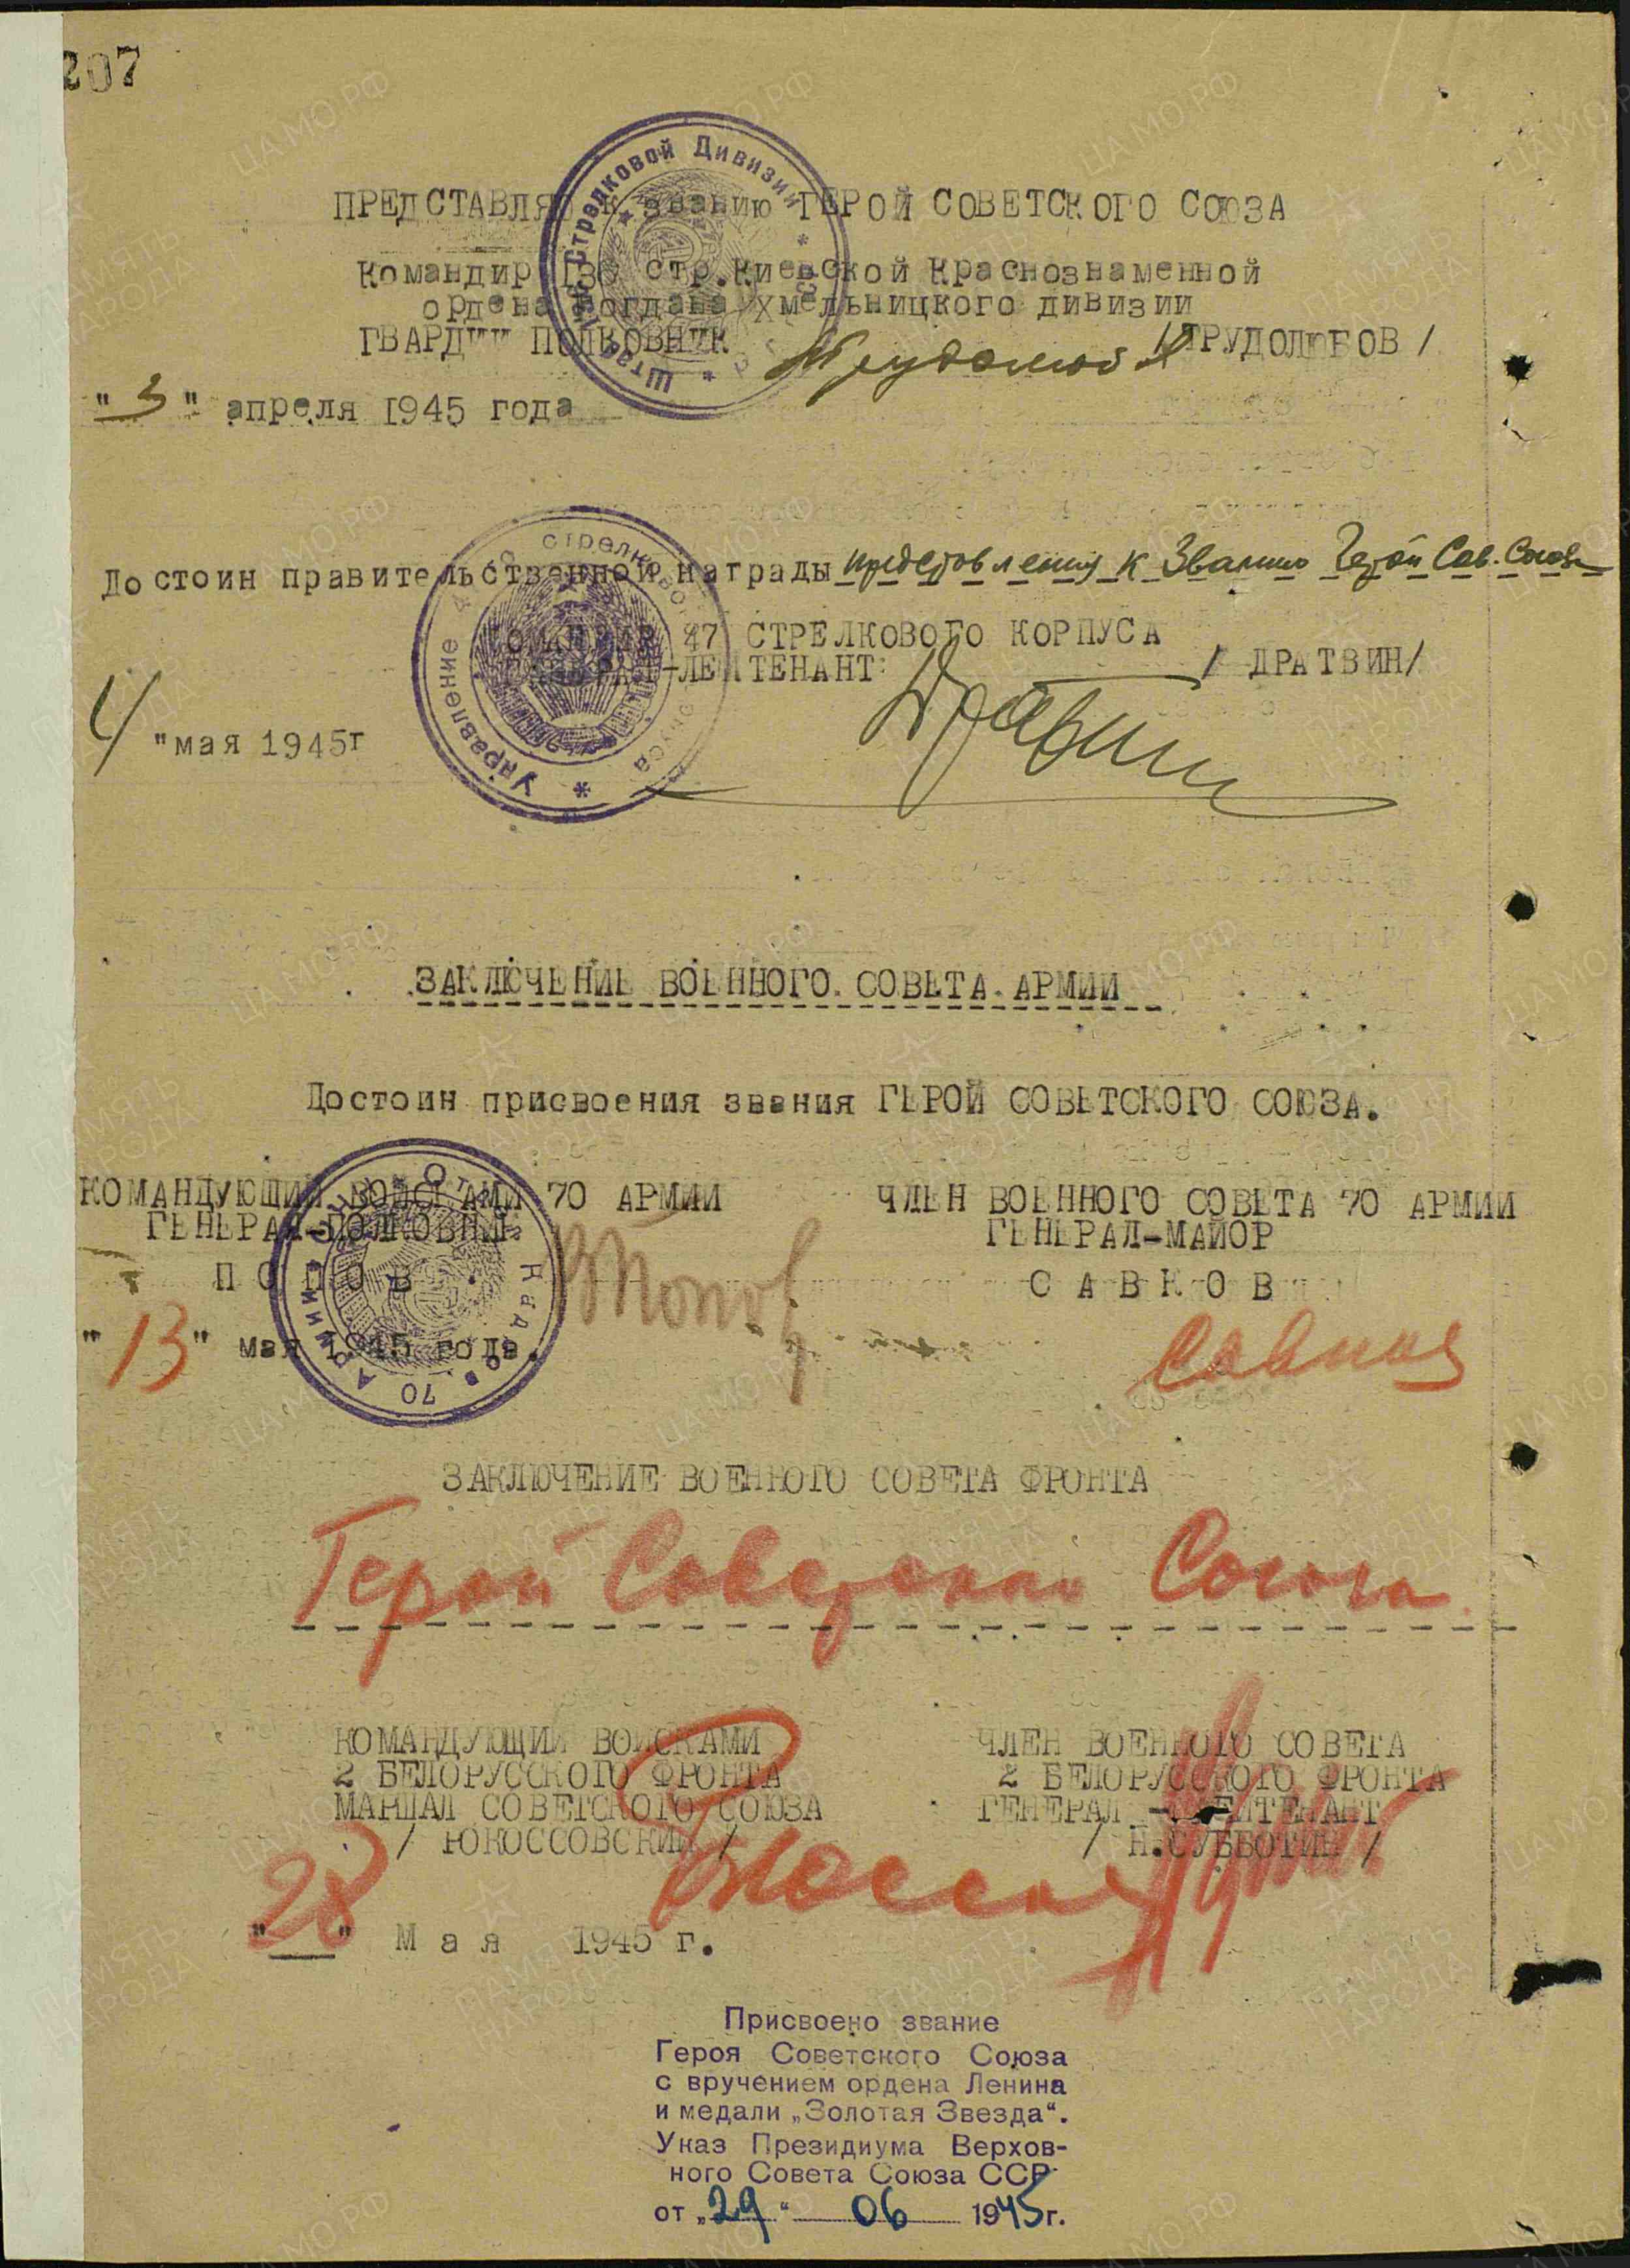 207
ПРЕДСТАВЛЯЮ к званию ГЕРОЙ СОВЕТСКОГО СОЮЗА
Командир стр.Киевской Краснознаменной
ордена Богдана Хмельницкого дивизии
ГВАРДИИ ПОЛКОВНИК /ТРУДОЛЮБОВ/
"3" апреля 1945 года
Достоин правительственной награды представления к Званию Герой Сов. Союза
КОМАНДИР 47 СТРЕЛКОВОГО КОРПУСА
ГЕНЕРАЛ-ЛЕЙТЕНАНТ: / ДРАТВИН/
4 "мая 1945г
ЗАКЛЮЧЕНИЕ ВОЕННОГО СОВЕТА АРМИИ
Достоин присвоения звания ГЕРОЙ СОВЕТСКОГО СОЮЗА.
КОМАНДУЮЩИЙ ВОЙСКАМИ 70 АРМИИ ЧЛЕН ВОЕННОГО СОВЕТА 70 АРМИИ
ГЕНЕРАЛ-ПОЛКОВНИК ГЕНЕРАЛ-МАЙОР
ПОПОВ ВПопов САВКОВ
"13" мая 1945 года. Савков
ЗАКЛЮЧЕНИЕ ВОЕННОГО СОВЕТА ФРОНТА
Герой Советского Союза
КОМАНДУЮЩИЙ ВОЙСКАМИ ЧЛЕН ВОЕННОГО СОВЕТА
2 БЕЛОРУССКОГО ФРОНТА 2 БЕЛОРУССКОГО ФРОНТА
МАРШАЛ СОВЕТСКОГО СОЮЗА ГЕНЕРАЛ-ЛЕЙТЕНАНТ
/ РОКОССОВСКИЙ / / Н.СУББОТИН /
"28" Мая 1945 г.
Присвоено звание
Героя Советского Союза
с вручением ордена Ленина
и медали „Золотая Звезда“.
Указ Президиума Верхов-
ного Совета Союза ССР
от „29“ 06 1945г.